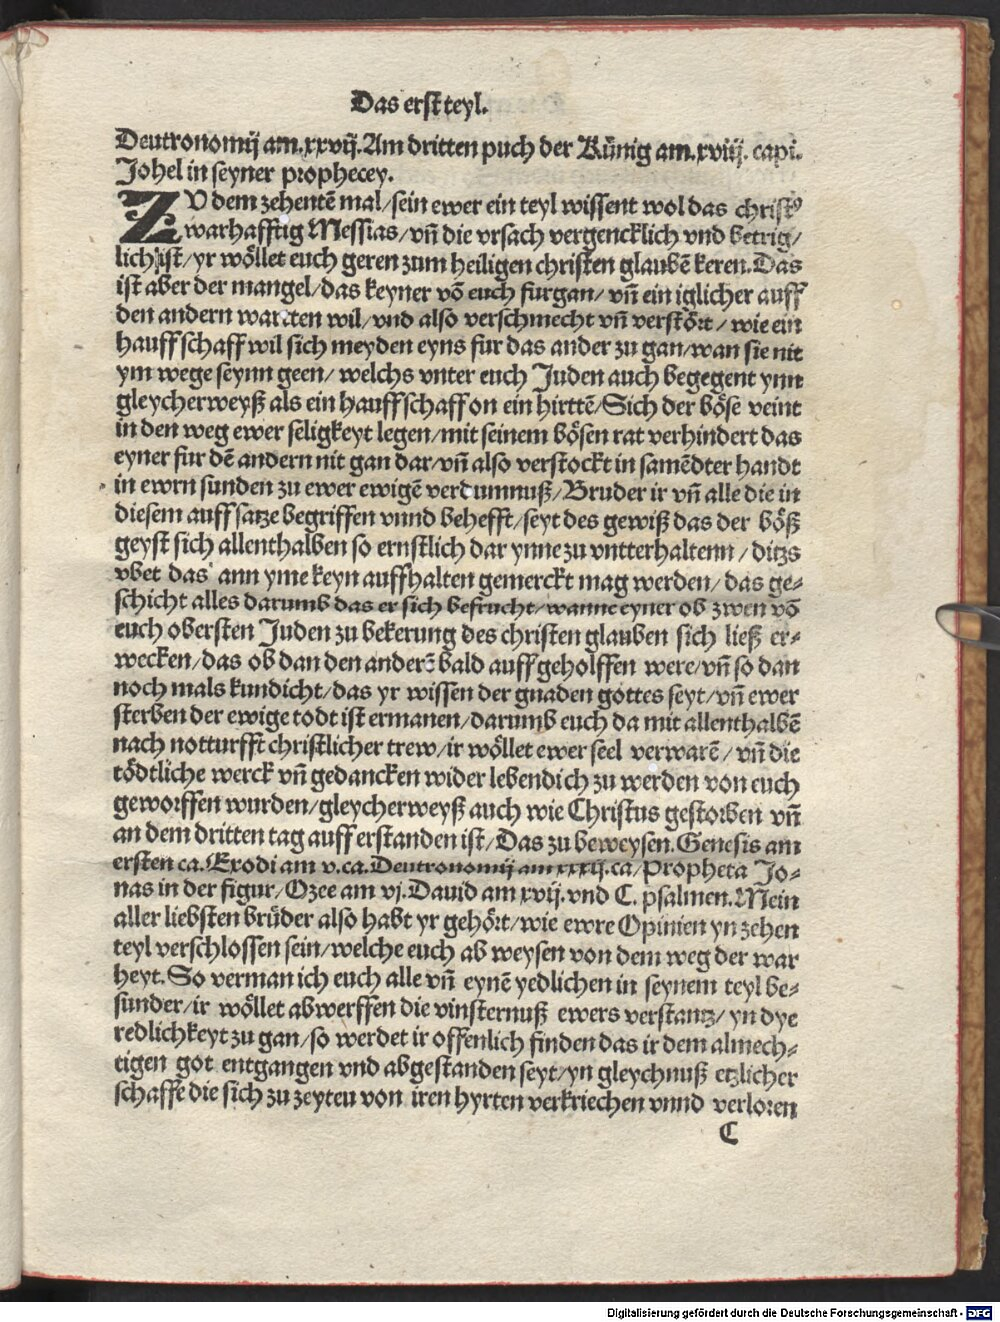 Das erst teyl.
Deutronomij am.xxvij.Am dritten puch der Künig am.xviij. capi.
Johel in seyner prophecey.
ZV dem zehentē mal/sein ewer ein teyl wissent wol das christꝰ
warhafftig Messias/vn̄ die vrsach vergencklich vnd betrig/
lich ist/yr wöllet euch geren zum heiligen christen glaubē keren.Das
ist aber der mangel/das keyner vō euch furgan/vn̄ ein iglicher auff
den andern warten wil/vnd also verschmecht vn̄ verstört/wie ein
hauff schaff wil sich meyden eyns fur das ander zu gan/wan sie nit
ym wege seynn geen/welchs vnter euch Juden auch begegent ynn
gleycherweyß als ein hauff schaff on ein hirttē/Sich der böse veint
in den weg ewer seligkeyt legen/mit seinem bösen rat verhindert das
eyner fur dē andern nit gan dar/vn̄ also verstockt in samēdter handt
in ewrn sunden zu ewer ewigē verdumnuß/Bruder ir vn̄ alle die in
diesem auff satze begriffen vnnd behefft/seyt des gewiß das der böß
geyst sich allenthalben so ernstlich dar ynne zu vntterhaltenn/ditzs
vbet das ann yme keyn auffhalten gemerckt mag werden/das ge⸗
schicht alles darumb das er sich befrucht/wanne eyner ob zwen vō
euch obersten Juden zu bekerung des christen glauben sich ließ er⸗
wecken/das ob dan den anderē bald auff geholffen were/vn̄ so dan
noch mals kundicht/das yr wissen der gnaden gottes seyt/vn̄ ewer
sterben der ewige todt ist ermanen/darumb euch da mit allenthalbē
nach notturfft christlicher trew/ir wöllet ewer seel verwarē/vn̄ die
tödtliche werck vn̄ gedancken wider lebendich zu werden von euch
geworffen wurden/gleycherweyß auch wie Christus gestorben vn̄
an dem dritten tag auff erstanden ist/Das zu beweysen.Genesis am
ersten ca.Exodi am v.ca.Deutronomij am xxxij.ca/Propheta Jo⸗
nas in der figur/Ozee am vj.Dauid am xvij.vnd C.psalmen.Mein
aller liebsten brüder also habt yr gehört/wie ewre Opinien yn zehen
teyl verschlossen sein/welche euch ab weysen von dem weg der war
heyt.So verman ich euch alle vn̄ eynē yedlichen in seynem teyl be⸗
sunder/ir wöllet abwerffen die vinsternuß ewers verstantz/yn dye
redlichkeyt zu gan/so werdet ir offenlich finden das ir dem almech⸗
tigen got entgangen vnd abgestanden seyt/yn gleychnuß etzlicher
schaffe die sich zu zeyteu von iren hyrten verkriechen vnnd verloren
C
Digitalisierung gefördert durch die Deutsche Forschungsgemeinschaft - DFG